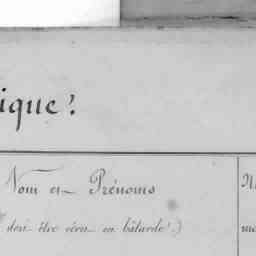 ique?
Nom et Prénoms
doit être écrit en bâtarde.)